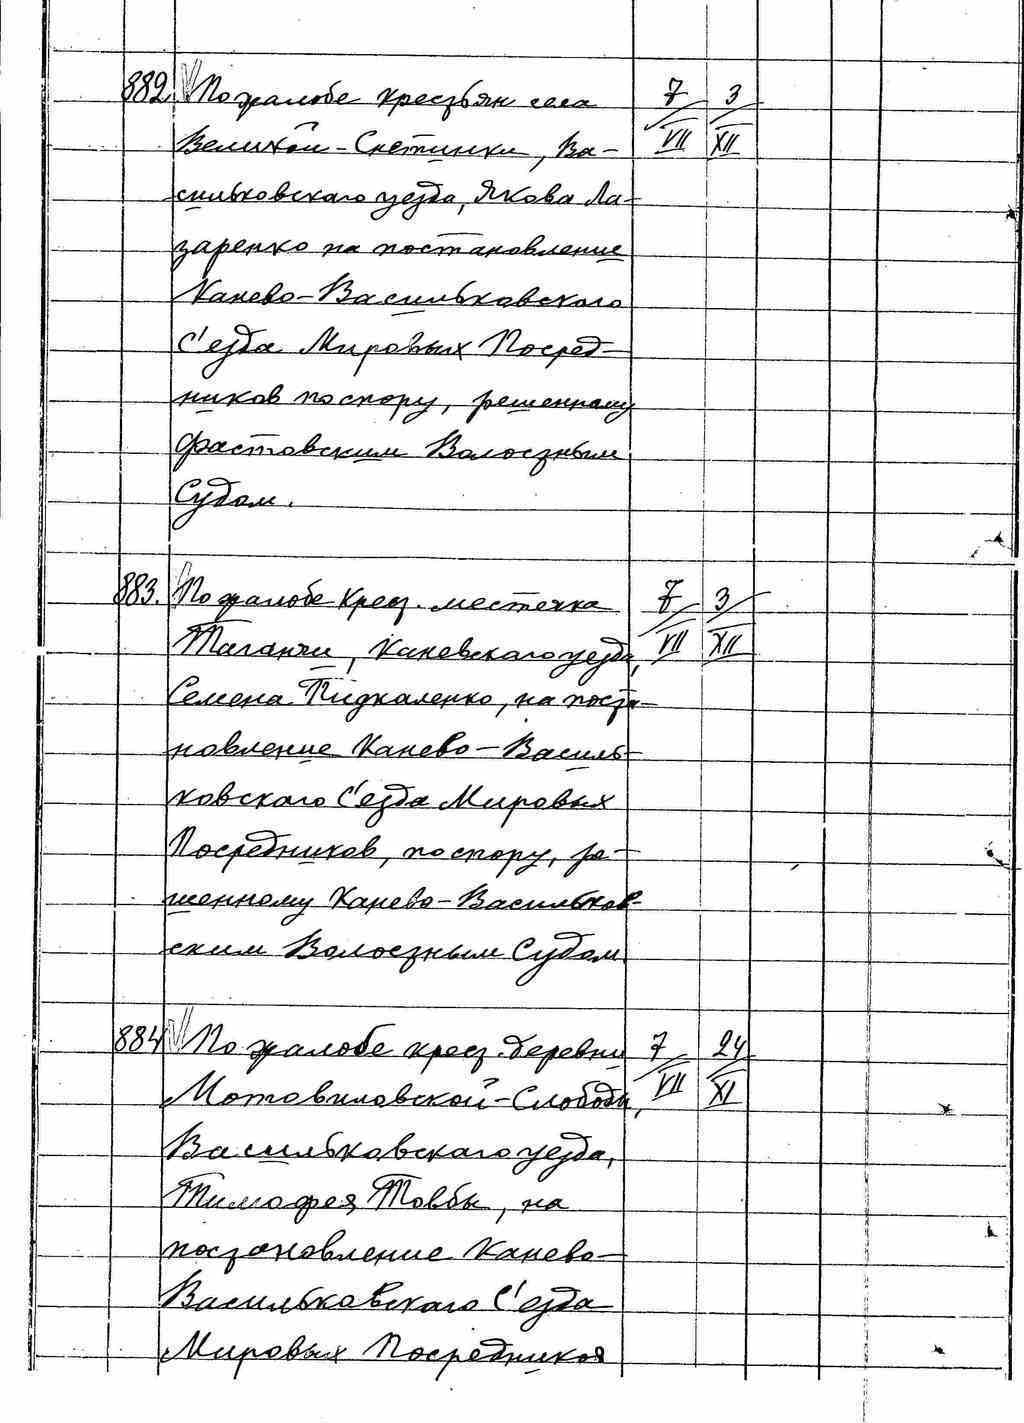 882. По жалобе крестьян села 7/VII 3/XII
Великой-Снетинки, Ва-
сильковскаго уезда, Якова Ла-
заренко на постановление
Канево-Васильковского
С'езда Мировых Посред-
ников по спору, решенному
Фастовским Волостным
Судом.
883. По жалобе Крест. местечка 7/VII 3/XII
Таганчи, Каневскаго уезда,
Семена Пидкаленко, на поста-
новление Канево-Василь-
ковскаго С'езда Мировых
Посредников, по спору, ре-
шенному Канево-Васильков-
ским Волостным Судом.
884 По жалобе крест. деревни 7/VII 24/XI
Мотовиловской-Слободы,
Васильковскаго уезда,
Тимофея Товбы, на
постановление Канево-
Васильковскаго С'езда
Мировых Посредников